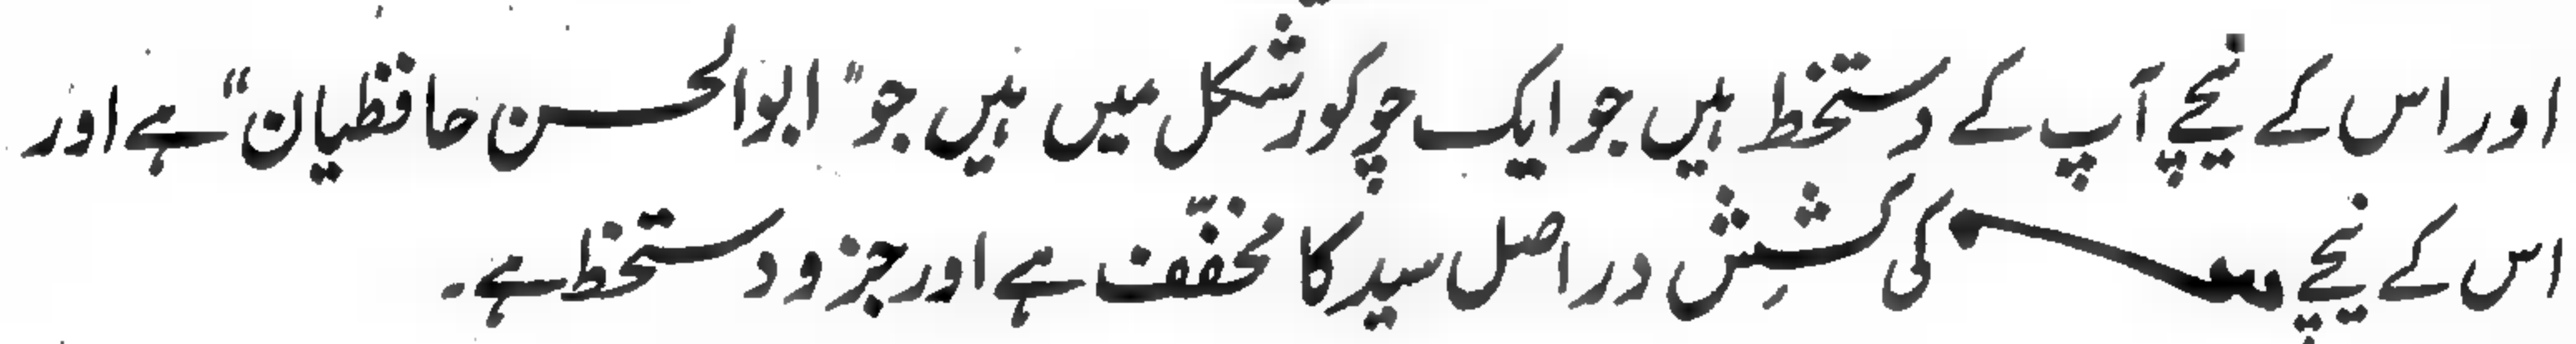 اور اس کے نیچے آپ کے دستخط ہیں جو ایک چوکور شکل میں ہیں جو "ابوالحسن حافظیان" ہے اور
اس کے نیچے کی کشِش دراصل سید کا مخفّف ہے اور جزو دستخط ہے۔